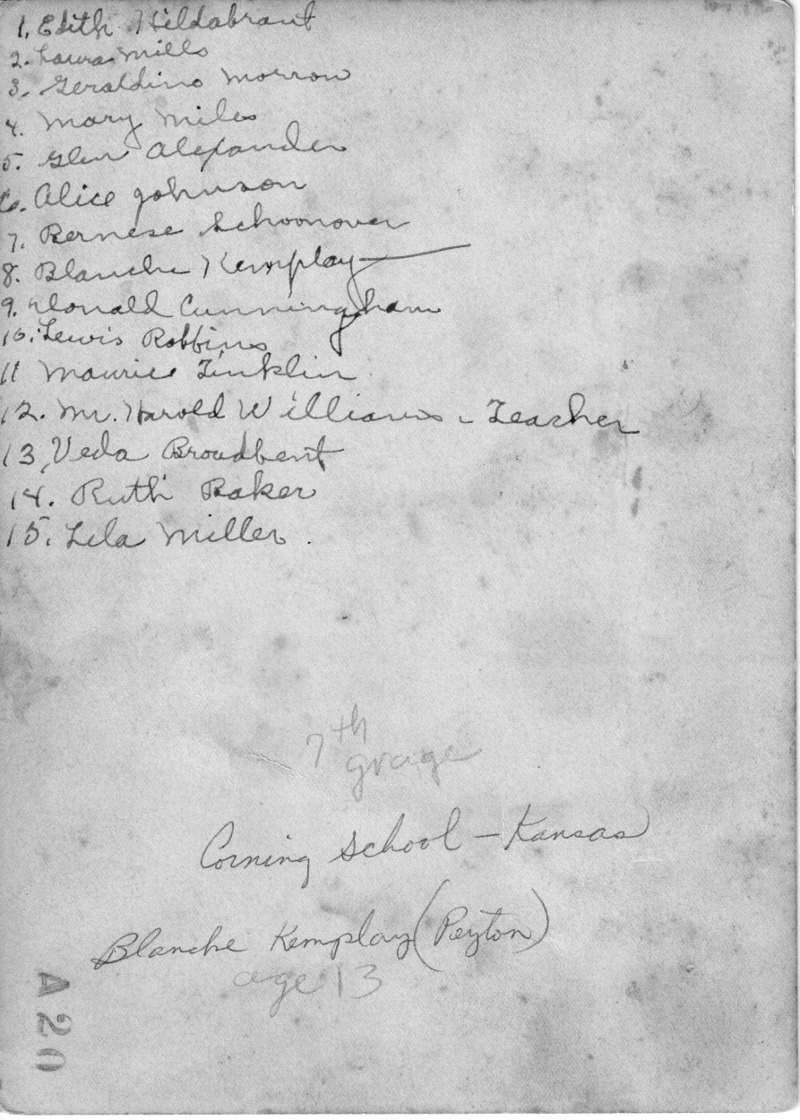 1. Edith Hildabrant
2. Laura Mills
3. Geraldine Morrow
4. Mary Miles
5. Glen Alexander
6. Alice Johnson
7. Bernese Schoonover
8. Blanche Kemplay
9. Donald Cunningham
10. Lewis Robbins
11 Maurice Tinklin
12. Mr. Harold Williams - Teacher
13, Veda Broadbent
14. Ruth Baker
15. Lela Miller.
7th
grage
Corning School - Kansas
Blanche Kemplay (Peyton)
age 13
A20